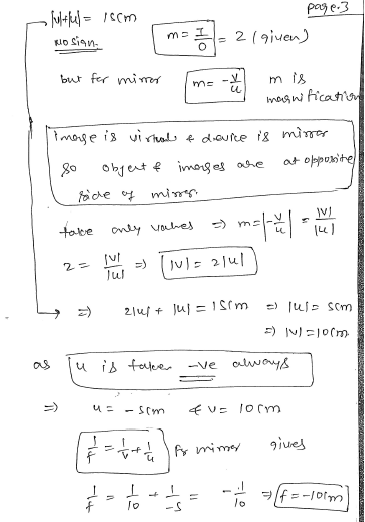 page.3
|v|+|u| = 15cm
NO sign.
m = I/O = 2 (given)
but for mirror m = -v/u m is magnification
image is virtual & device is mirror
so object & images are at opposite
side of mirror.
take only values => m = |-v/u| = |v|/|u|
2 = |v|/|u| => |v| = 2|u|
=> 2|u| + |u| = 15cm => |u| = 5cm
=> |v| = 10cm
as u is taken -ve always
=> u = -5cm & v = 10cm
1/f = 1/v + 1/u for mirror gives
1/f = 1/10 + 1/-5 = -1/10 => f = -10cm